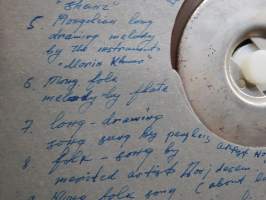 "Shanz"
5. Mongolian long
drawing melody
by the instrument
"Morin Khuur"
6. Mong folk
melody by flute
7. long-drawing
song sung by people's artist No
8. folk-song by
merited artist
Mong folk song (about